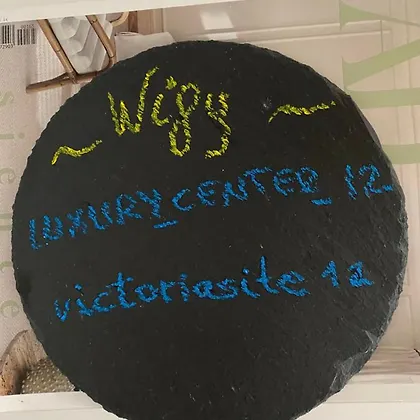 ~ Wify ~
LUXURY_CENTER_12
victoriasite 12